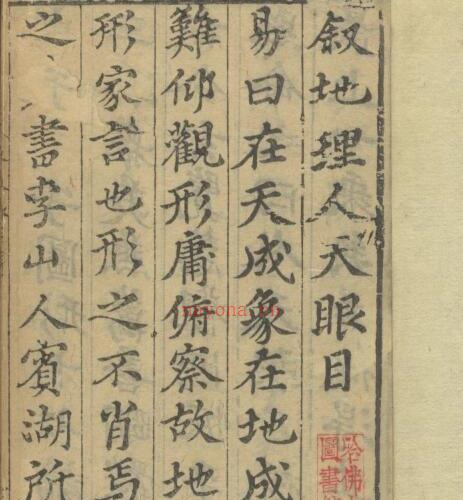 叙地理人天眼目
易曰在天成象在地成
難仰觀形庸俯察故地
形家言也形之不肖焉
之 書李山人賓湖所
哈佛
圖書